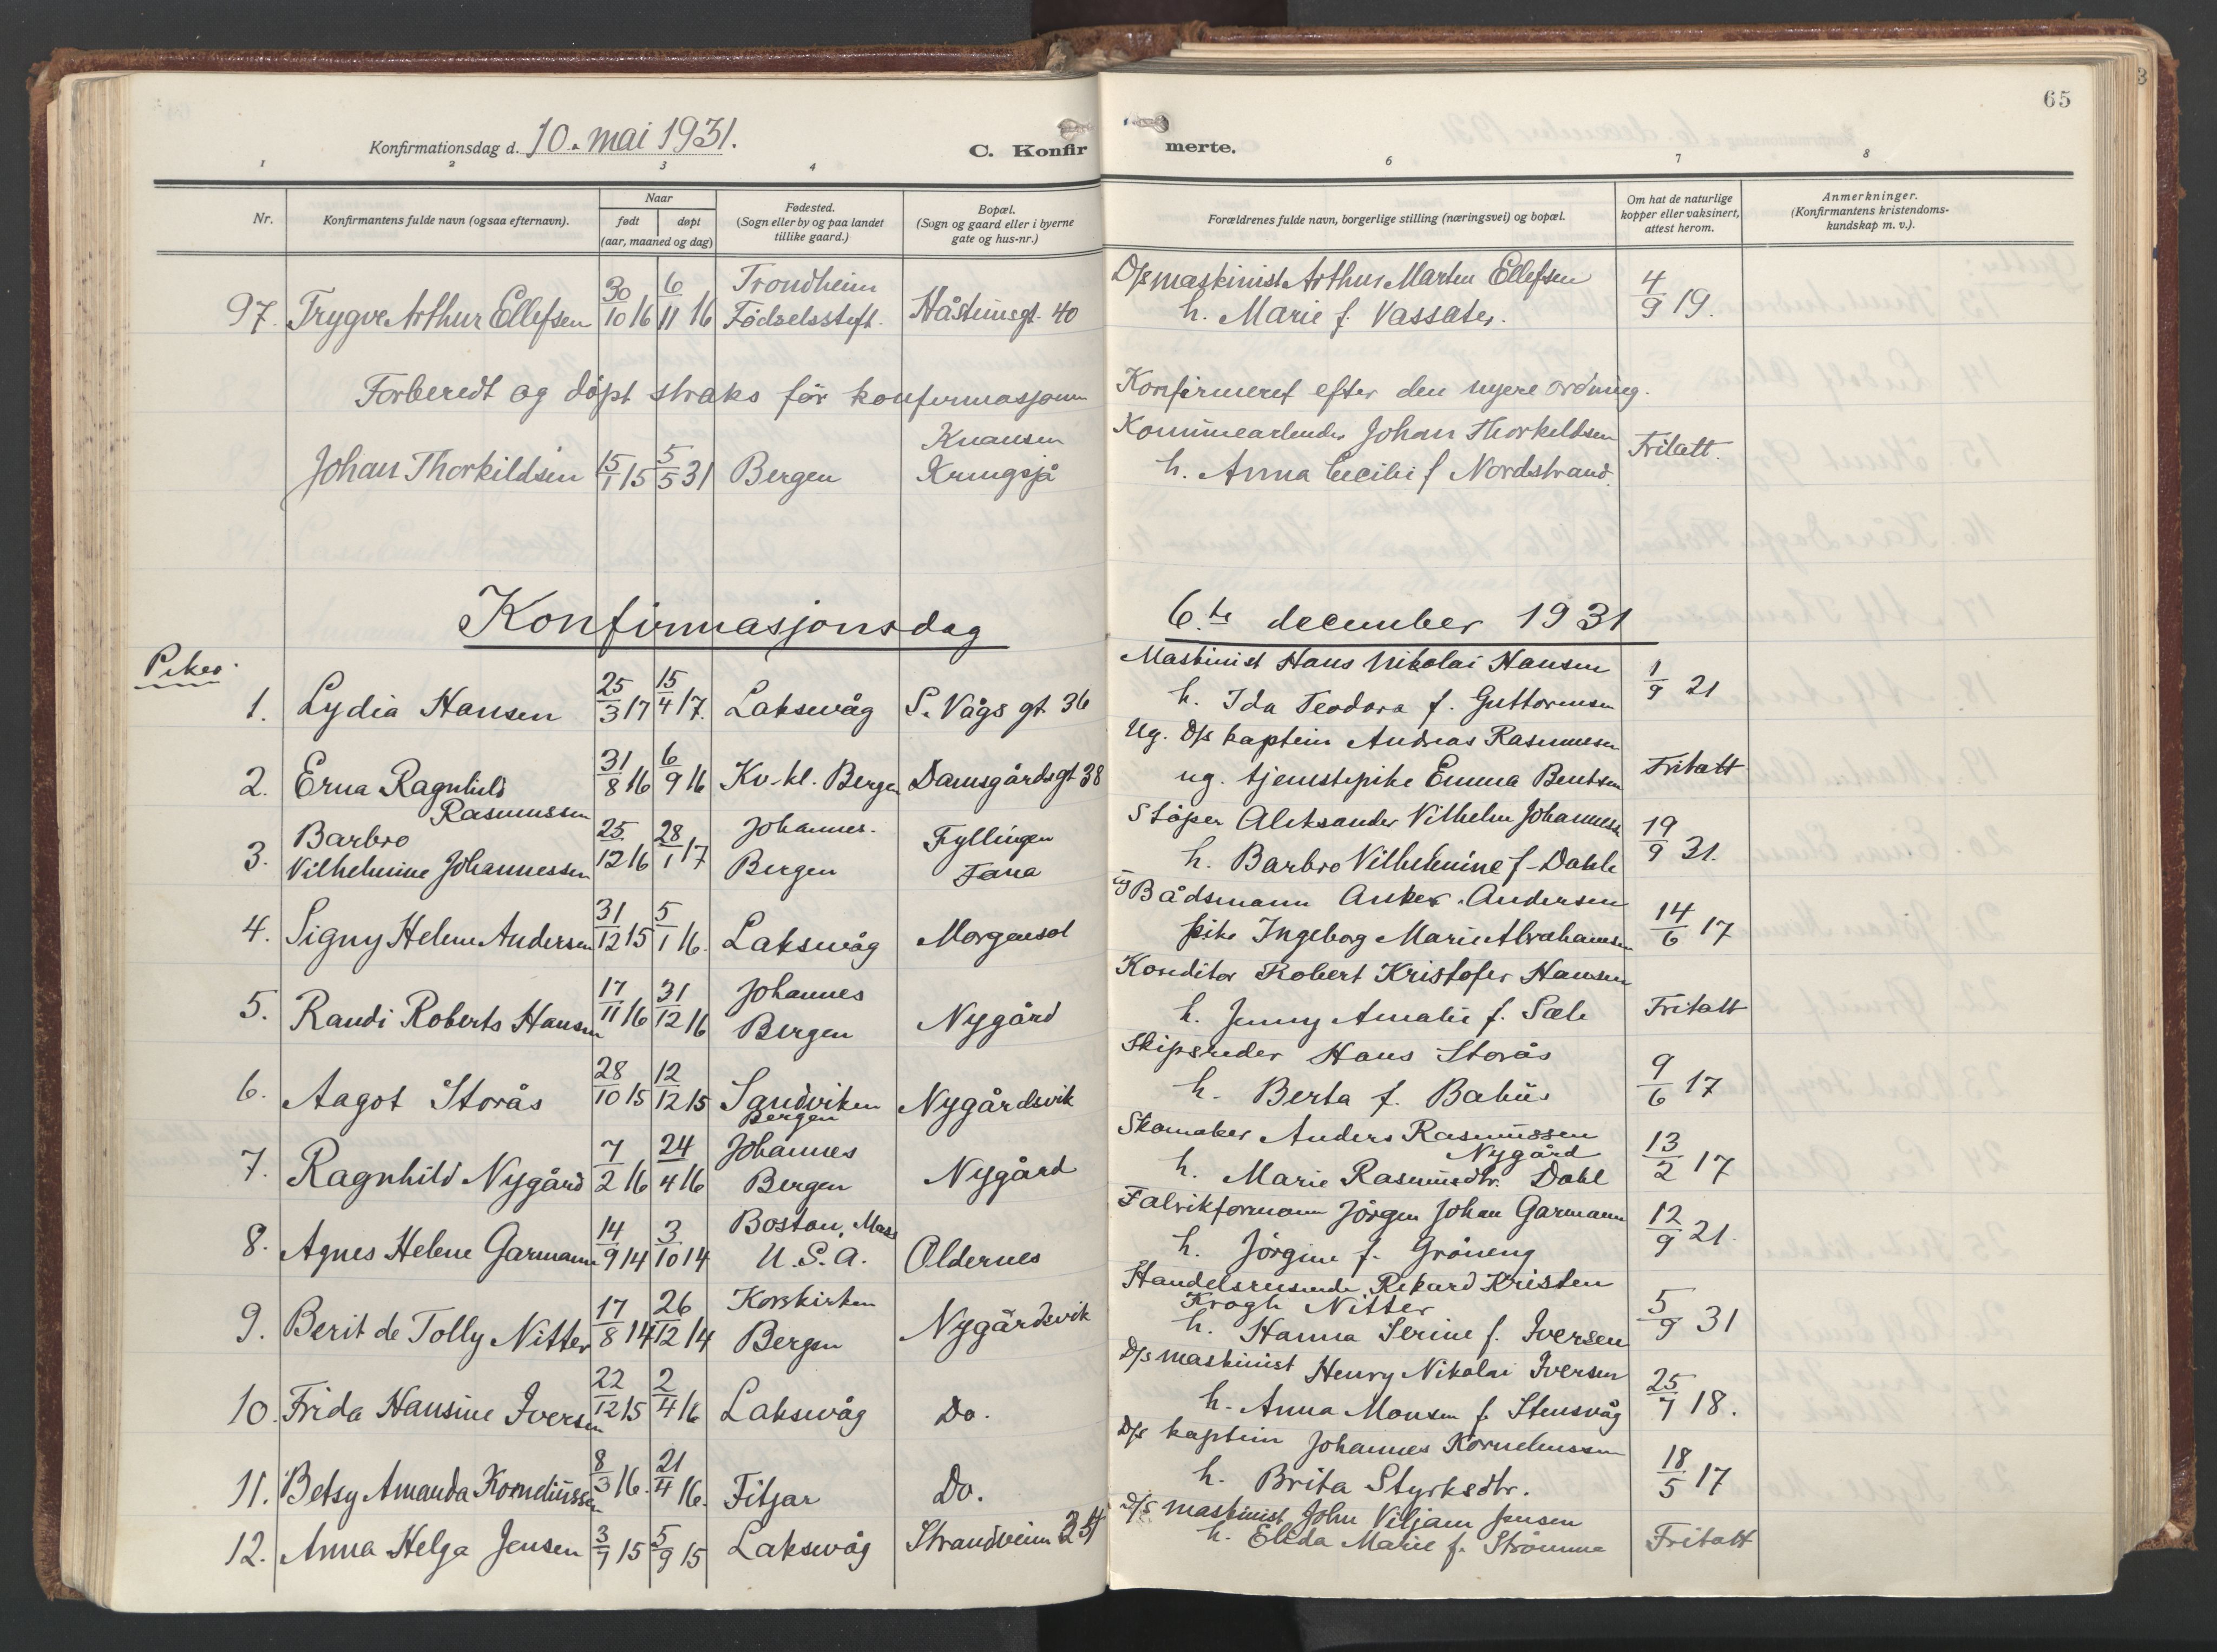 65
Konfirmationsdag d. 10. mai 1931.
C. Konfirmerte.
1 2 3 4 6 7 8
Nr. Konfirmantens fulde navn (ogsaa efternavn). Naar født døpt (aar, maaned og dag) Fødested. (Sogn eller by og paa landet tillike gaard.) Bopæl. (Sogn og gaard eller i byerne gate og hus-nr.) Forældrenes fulde navn, borgerlige stilling (næringsvei) og bopæl. Om hat de naturlige kopper eller vaksinert, attest herom. Anmerkninger. (Konfirmantens kristendoms-kundskap m. v.).
97. Trygve Arthur Ellefsen 30/10 16 6/11 16 Trondheim Fødselsstift. Håsteinsgt. 40 D/s maskinist Arthur Martin Ellefsen 4/9 19.
h. Marie f. Vassater.
Forberedt og døpt straks før konfirmasjonen Konfirmeret efter den nyere ordning.
Johan Thorkildsen 15/1 15 5/5 31 Bergen Knausen Kringsjå Kommunearbeider Johan Thorkildsen Fritatt.
h. Anna Cecilie f Nordstrand.
Konfirmasjonsdag 6.te december 1931
Piker.
1. Lydia Hansen 25/3 17 15/4 17. Laksevåg S. Vågs gt 36 Maskinist Hans Nikolai Hansen 1/9 21
h. Ida Teodora f. Guttormsen
2. Erna Ragnhild Rasmussen 31/8 16 6/9 16 Kv-kl. Bergen Damsgårdsgt 38 Ug. D/s kaptein Andreas Rasmussen Fritatt
ug. tjenestepike Emma Bentsen
3. Barbro Vilhelmine Johannessen 25/12 16 28/1 17 Johannes. Bergen Fyllingen Fana Støper Aleksander Vilhelm Johannessen 19/9 31.
h. Barbro Vilhelmine f. Dahle
4. Signy Helene Andersen 31/12 15 5/1 16. Laksevåg Morgensol ug Bådsmann Anker Andersen 14/6 17
pike Ingeborg Marie Abrahamsen
5. Randi Roberts Hansen 17/11 16 31/12 16 Johannes Bergen Nygård Konditor Robert Kristofer Hansen Fritatt
h. Jenny Amalie f. Sæle
6. Aagot Storås 28/10 15 12/12 15 Sandviken Bergen Nygårdsvik Skipsreder Hans Storås 9/6 17
h. Berta f.
7. Ragnhild Nygård 7/2 16 24/4 16 Johannes Bergen Nygård Skomaker Anders Rasmussen Nygård 13/2 17
h. Marie Rasmusdtr. Dahl
8. Agnes Helene Garmann 14/9 14 3/10 14 Boston, Mass U.S.A. Oldernes Fabrikformann Jørgen Johan Garmann 12/9 21.
h. Jørgine f. Grøneng
9. Berit de Tolly Nitter 17/8 14 26/12 14 Korskirken Bergen Nygårdsvik Handelsreisende Rikard Kristen Krogh Nitter 5/9 31
h. Hanna Serine f. Iversen
10. Frida Hansine Iversen 22/12 15 2/4 16 Laksevåg Do. D/s maskinist Henry Nikolai Iversen 25/7 18.
h. Anna Monsen f. Stensvåg
11. Betsy Amanda Korneliussen 8/3 16. 21/4 16. Fitjar Do. D/s kaptein Johannes Korneliussen 18/5 17
h. Brita Styrksdtr.
12. Anna Helga Jensen 3/7 15 5/9 15 Laksevåg Strandveien 254 D/s maskinist John Viljam Jensen Fritatt
h. Elida Marie f. Strømme